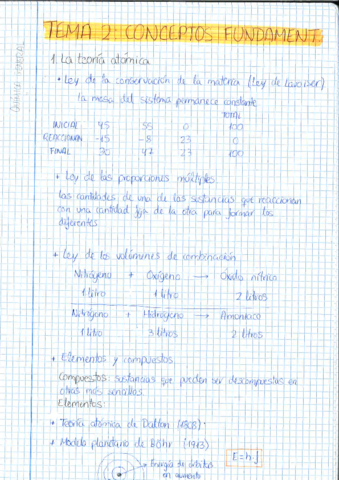 TEMA 2: CONCEPTOS FUNDAMENT
QUÍMICA GENERAL
1. La teoría atómica
• Ley de la conservación de la materia (Ley de Lavoiser)
la masa del sistema permanece constante
TOTAL
INICIAL 45 55 0 100
REACCIONAN -15 -8 23 0
FINAL 30 47 23 100
• Ley de las proporciones múltiples.
las cantidades de una de las sustancias que reaccionan
con una cantidad fija de la otra para formar las
diferentes
• Ley de los volúmenes de combinación
Nitrógeno + Oxígeno → Oxido nítrico
1 litro 1 litro 2 litros
Nitrógeno + Hidrógeno → Amoniaco
1 litro 3 litros 2 litros
• Elementos y compuestos
Compuestos: sustancias que pueden ser descompuestas en
otras más sencillas.
Elementos:
• Teoría atómica de Dalton (1808):
• Modelo planetario de Böhr (1913)
Energía de órbitas
en aumento